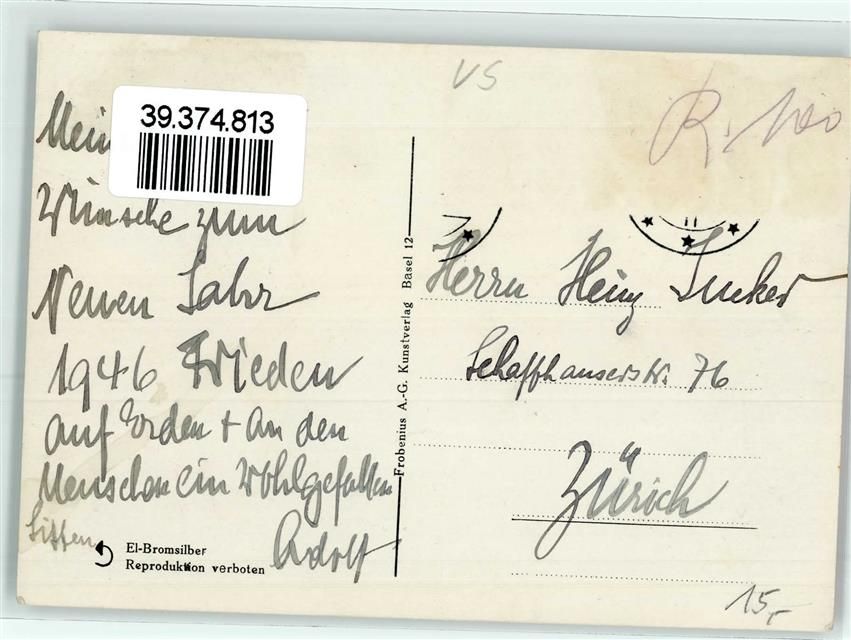 39.374.813
VS
Mein
Wünsche zum
Neuen Jahr
1946 Frieden
auf Erden + an den
Menschen ein Wohlgefallen
Adolf
Sitten
El-Bromsilber
Reproduktion verboten
Frobenius A.-G. Kunstverlag Basel 12
Herrn Heinz
Schaffhauserstr. 76
Zürich
15,-